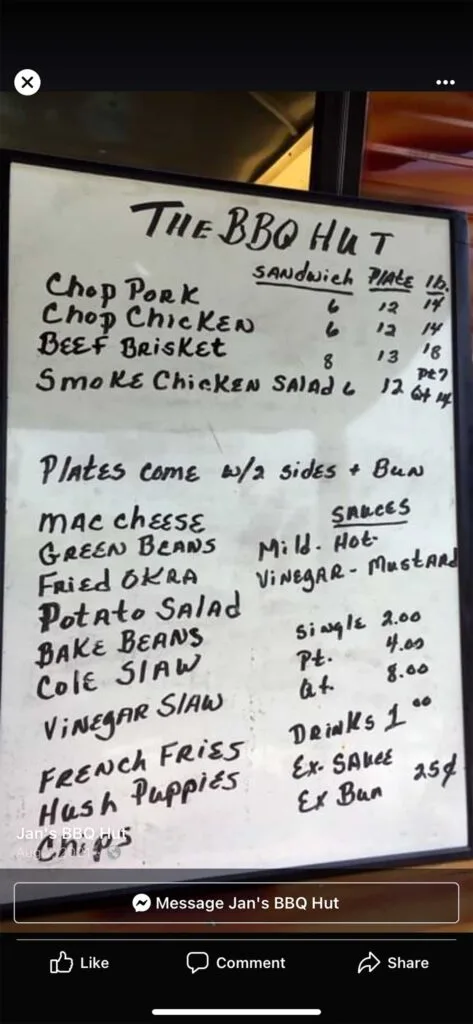 THE BBQ HUT
SANDWICH PLATE lb.
Chop PORK 6 12 14
Chop ChicKEN 6 12 14
BEEF BRISKET 8 13 18
SMOKE ChicKEN SALAd 6 12 Pt 7 Qt 14
PlATES COME w/2 SIDES + BUN
MAC ChEESE
GREEN BEANS
FRiEd OKRA
POTATO SALAd
BAKE BEANS
COlE SlAW
ViNEGAR SlAW
FRENCH FRiES
Hush PuppiES
ChipS
SAUCES
Mild - Hot -
ViNEGAR - MUSTARD
SiNglE 2.00
Pt. 4.00
Qt. 8.00
DRiNKS 1 00
Ex. SAUCE
Ex BUN 25¢
Jan's BBQ Hut
Message Jan's BBQ Hut
Like Comment Share